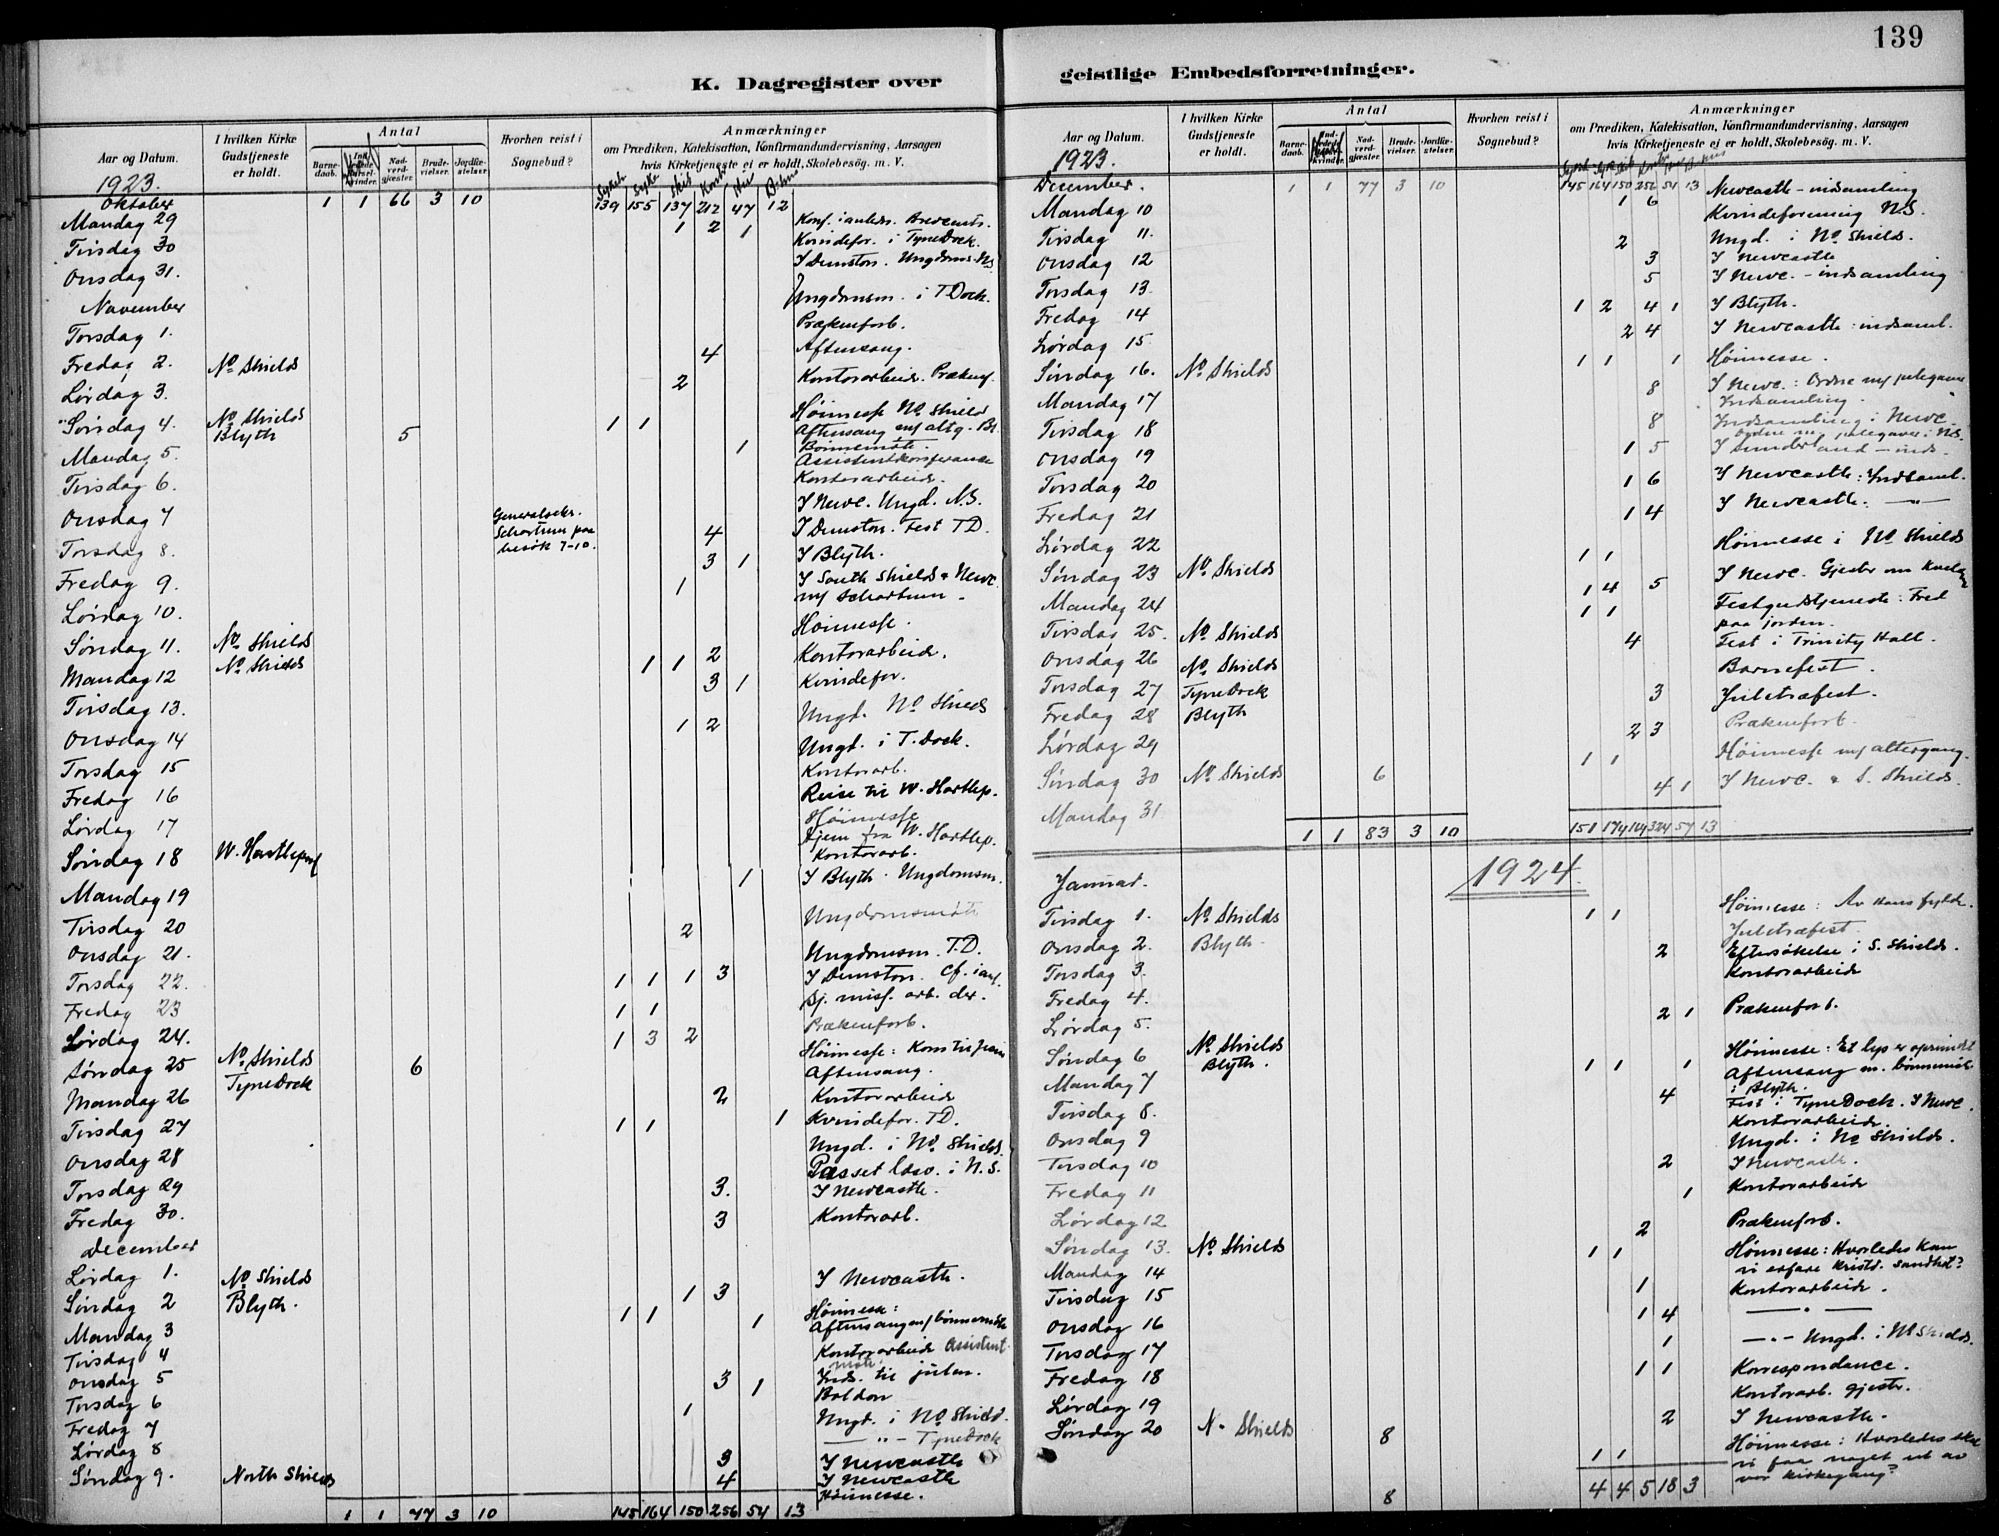 139
K. Dagregister over
Aar og Datum.
I hvilken Kirke
Gudstjeneste
er holdt.
Antal
Barne-
daab.
Nad-
verd-
gjæster.
Brude-
vielser.
Jordfæ-
stelser.
Hvorhen reist i
Sognebud?
Anmærkninger
om Prædiken, Katekisation, Konfirmandundervisning, Aarsagen
hvis Kirketjeneste ei er holdt, Skolebesög. m. V.
1923.
Oktober 1 1 66 3 10 139 155 137 212 47 12
Mandag 29 1 2 1
Tirsdag 30 Kvindefor. i TyneDock.
Onsdag 31. I Dunston. Ungdoms. NS
November Ungdomsm. i T Dock.
Torsdag 1. Prækenforb.
Fredag 2. No Shields 4 Aftensang.
Lørdag 3. 2 Kontorarbeid.
Søndag 4. No Shields 1 1 Høimesse No Shields
Blyth 5 Aftensang m/ altg. Bl.
Mandag 5. 1 Bønnemøte.
Assistentkonferance
Tirsdag 6. Kontorarbeid.
Onsdag 7 Generalsekr. I Newc. Ungd. N.S.
Schartum paa 4 I Dunston. Fest T.D.
Torsdag 8. besøk 7-10. 3 1 I Blyth.
Fredag 9. 1 I South Shields & Newc.
m/ Schartum.
Lørdag 10. Høimesse.
Søndag 11. No Shields 2 Kontorarbeid.
Mandag 12 No Shields 1 1 3 1 Kvindefor.
Tirsdag 13. Ungd. No Shields
Onsdag 14 1 2 Ungd. i T. Dock.
Torsdag 15 Kontorarb.
Fredag 16 Reise til W. Hartlep.
Lørdag 17 Høimesse
Hjem fra W. Hartlep.
Søndag 18 Kontorarb.
Mandag 19 1 I Blyth. Ungdomsm.
Tirsdag 20 2 Ungdomsmøte
Onsdag 21. Ungdomsm. T.D.
Torsdag 22. 1 1 1 3 I Dunston.
Fredag 23 1 1 Sj. miss. arb. der.
Lørdag 24. 1 3 2 Prækenforb.
Søndag 25 No Shields 6 Høimesse:
TyneDock Aftensang.
Mandag 26 2 Kontorarbeid
Tirsdag 27 1 1 1 Kvindefor. T.D.
Onsdag 28 Ungd. i No Shields.
Torsdag 29 3. I Newcastle.
Fredag 30. 3 Kontorarb.
December
Lørdag 1. No Shields 1 3 I Newcastle.
Søndag 2 Blyth. 1 1 1 Høimesse:
Aftensang m/ bønnemøte
Mandag 3 Kontorarbeid Assistent
møte.
Tirsdag 4 Inds. til julen.
Onsdag 5 3 1 Boldon
Torsdag 6 1 Ungd. i No Shield.
Fredag 7 — " — TyneDock
Lørdag 8 3 I Newcastle
Søndag 9. North Shields 4 I Newcastle
Høimesse.
1 1 77 3 10 145 164 150 256 54 13
geistlige Embedsforretninger.
Aar og Datum.
I hvilken Kirke
Gudstjeneste
er holdt.
Antal
Barne-
daab.
Nad-
verd-
gjæster.
Brude-
vielser.
Jordfæ-
stelser.
Hvorhen reist i
Sognebud?
Anmærkninger
om Prædiken, Katekisation, Konfirmandundervisning, Aarsagen
hvis Kirketjeneste ei er holdt, Skolebesög. m. V.
1923.
December. 1 1 77 3 10 145 164 150 256 54 13 Newcastle - indsamling
Mandag 10 1 6 Kvindeforening N.S.
Tirsdag 11. 2 Ungd. i No Shields.
Onsdag 12 3 I Newcastle
Torsdag 13. 5 I Newc. - indsamling
Fredag 14 1 2 4 1 I Blyth.
Lørdag 15. 2 4 I Newcastle: indsaml.
Søndag 16. No Shields 1 1 1 Høimesse.
Mandag 17 8 I Newc.: Ordne m/ julegaver
Indsamling.
Tirsdag 18 8 Indsamling i Newc.
Ordne m/ julegaver i N.S.
Onsdag 19 1 5 I Sunderland - inds.
Torsdag 20 1 6 I Newcastle: Indsaml.
Fredag 21 1 4 I Newcastle. — " —
Lørdag 22 Høimesse i No Shields
Søndag 23 No Shields 1 1
Mandag 24 1 4 5 I Newc.
Tirsdag 25. No Shields 1 1 Festgudstjeneste: Fred
paa jorden.
Onsdag 26 No Shields 4 Fest i Trinity Hall.
Torsdag 27 TyneDock Barnefest.
Fredag 28 Blyth 3 Juletræfest.
Lørdag 29 2 3 Prækenforb.
Søndag 30 No Shields 6 1 1 Høimesse m/ altergang.
Mandag 31 4 1 I Newc. & S. Shields.
1 1 83 3 10 151 174 164 324 57 13
1924
Januar.
Tirsdag 1. No Shields 1 1 Høimesse: Av Hans fylde.
Onsdag 2. Blyth. Juletræfest.
Torsdag 3. 2 Eftersøkelse i S. Shields.
Fredag 4. Kontorarbeid
Lørdag 5. 2 1 Prækenforb.
Søndag 6 No Shields Høimesse: Et lys er oprundet
Blyth. 1 1 1 Aftensang m. bønnemøte
i Blyth.
Mandag 7 4 Fest i TyneDock. I Newc.
Tirsdag 8. Kontorarbeide.
Onsdag 9 Ungd. i No Shields.
Torsdag 10 2 I Newcastle.
Fredag 11 1 Kontorarbeid
Lørdag 12 2 Prækenforb.
Søndag 13. No Shields 1 1 Høimesse: Hvorledes kan
vi erfare kristd. sandhet?
Mandag 14 1 Kontorarbeid.
Tirsdag 15 1 4 — " —
Onsdag 16 1 — " — Ungd. i No Shields.
Torsdag 17 1 1 Korrespondance.
Fredag 18 Kontorarb. Gjestr.
Lørdag 19 2 I Newcastle.
Søndag 20 N. Shields 8 1 1 Høimesse: Hvorledes skal
vi faa noget ut av
vor kirkegang?
8 4 4 5 18 3